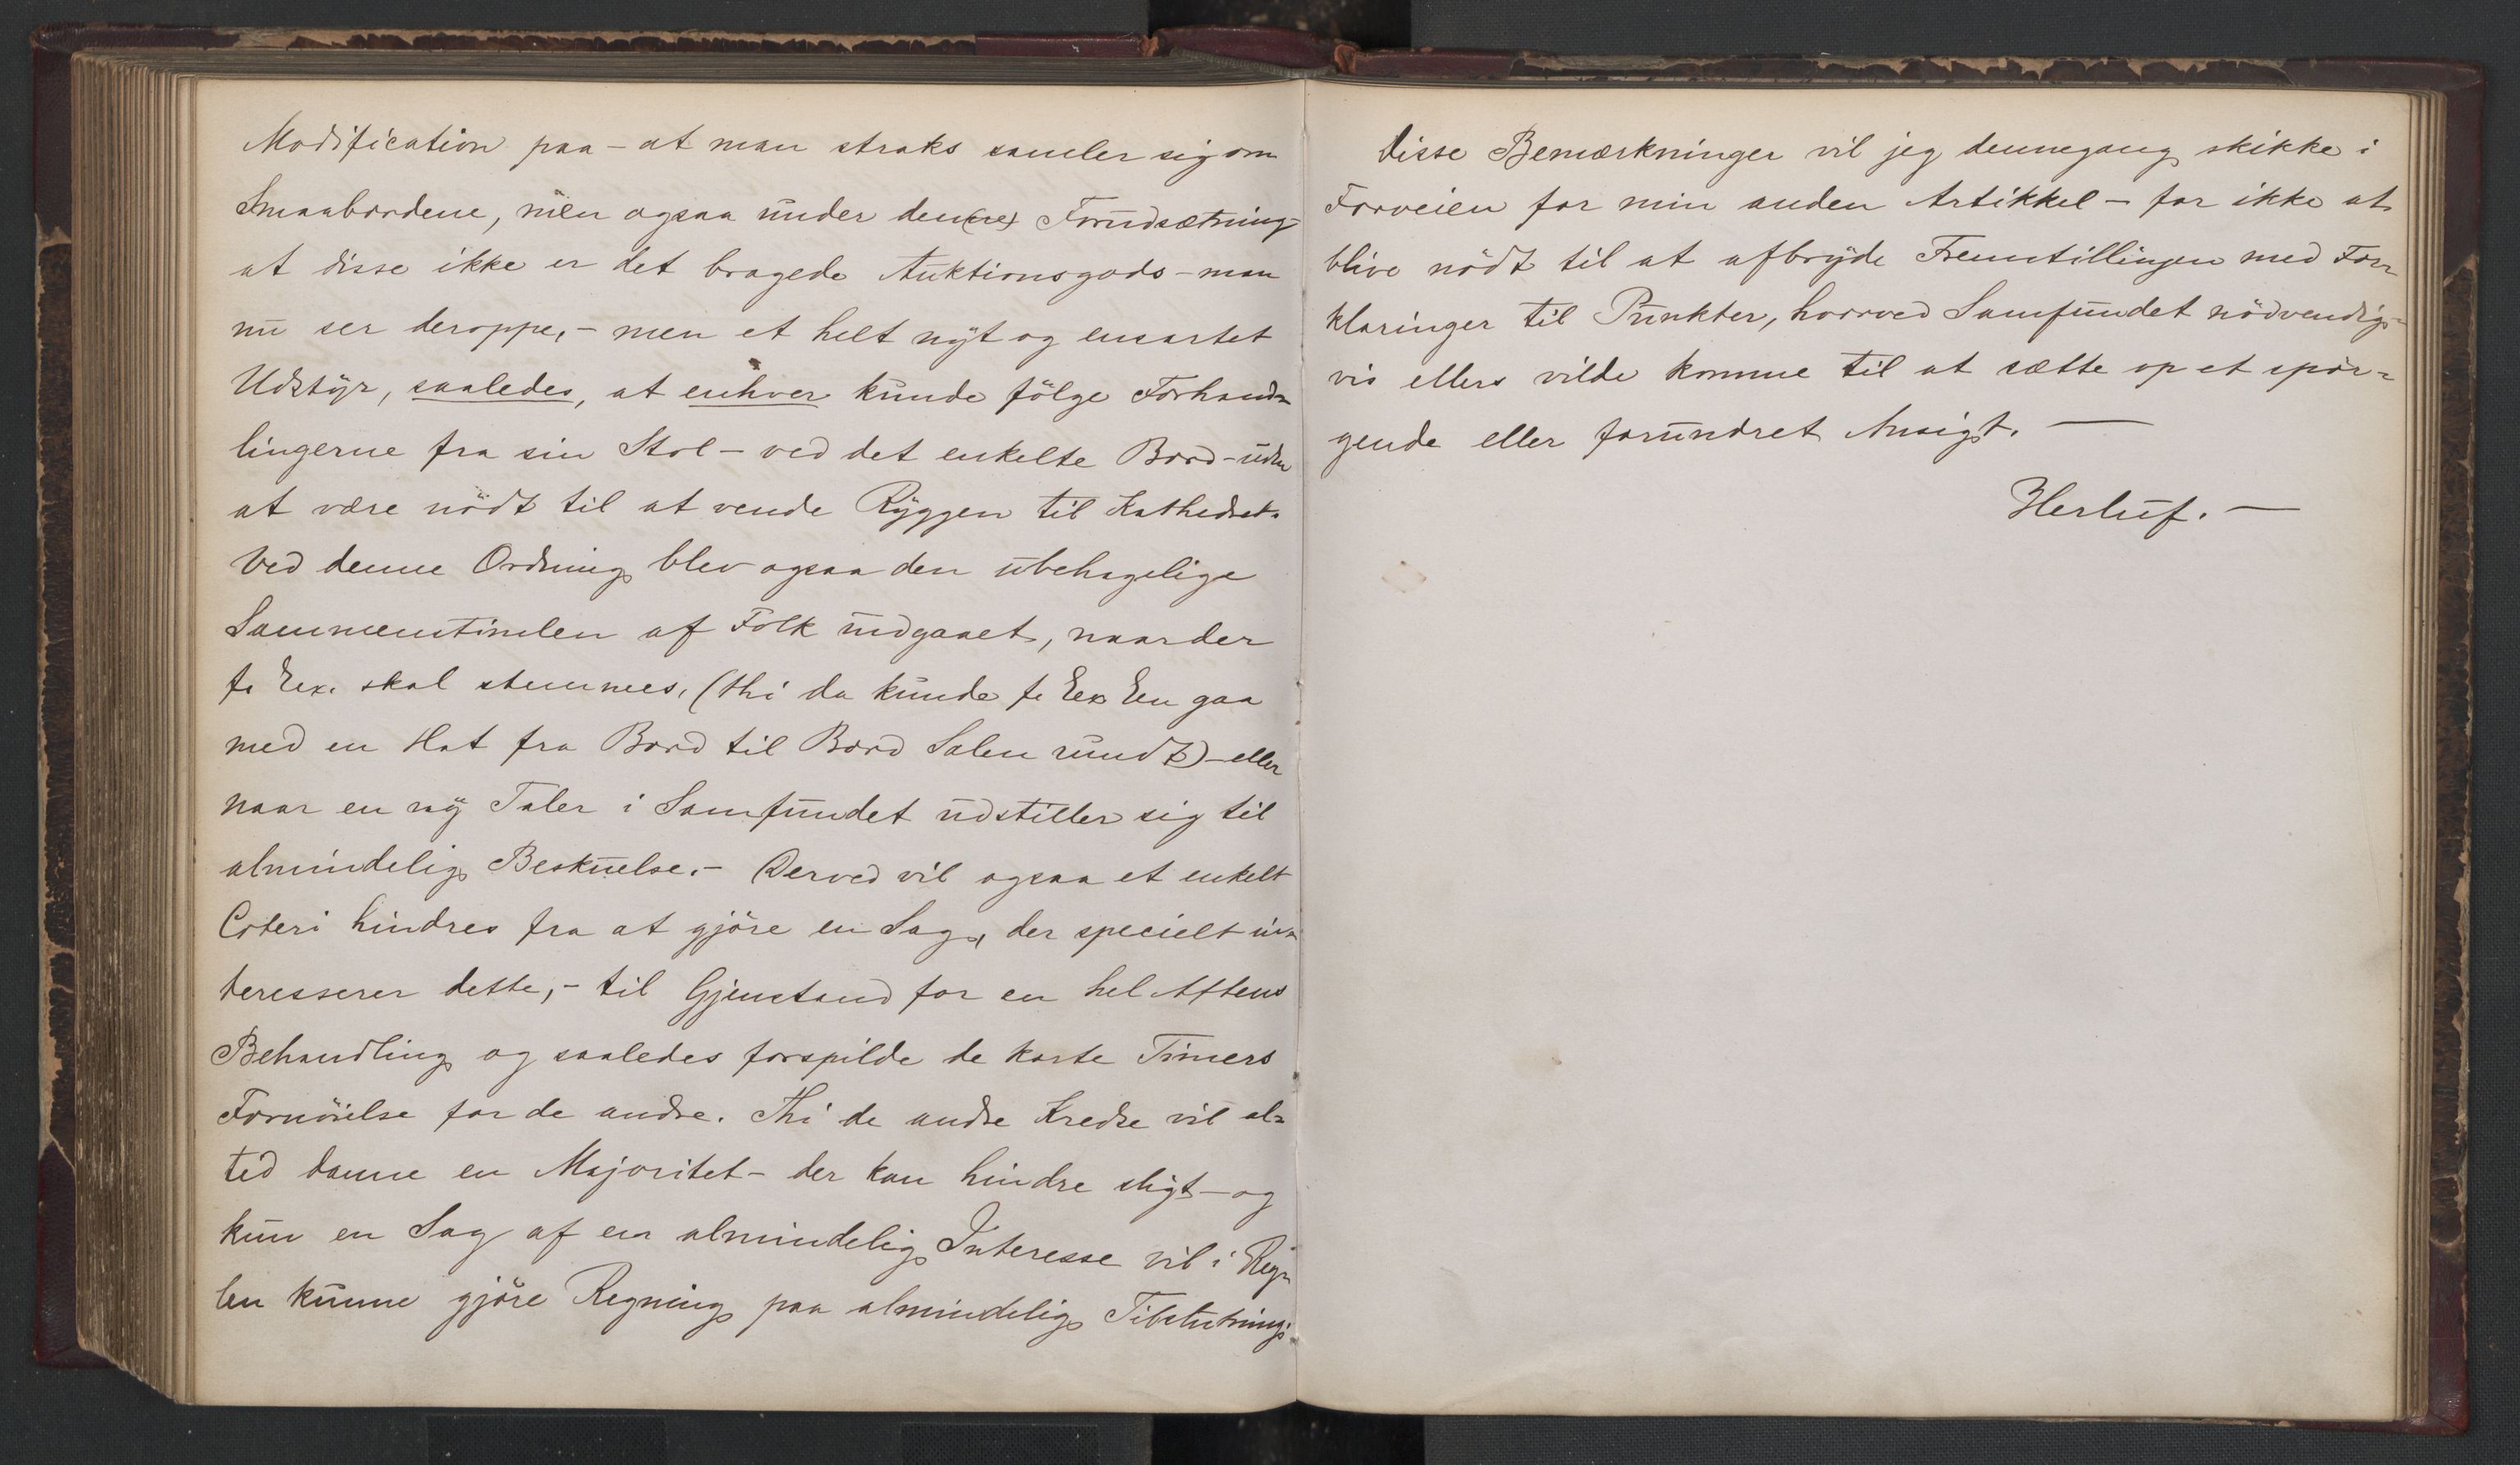 Modification paa – at man straks samler sig om
Smaabordene, men ogsaa under den(ne) Forudsætning
at disse ikke er det bragede Auktionsgods – man
nu ser deroppe, – men et helt nyt og ensartet
Udstyr, saaledes, at enhver kunde følge Forhand-
lingerne fra sin Stol – ved det enkelte Bord – uden
at være nødt til at vende Ryggen til Kathedret.
Ved denne Ordning blev ogsaa den ubehagelige
Sammenstimlen af Folk undgaaet, naar der
f. Ex. skal stemmes, (thi da kunde f. Ex En gaa
med en Hat fra Bord til Bord Salen rundt) – eller
naar en ny Taler i Samfundet udstiller sig til
almindelig Beskuelse. – Derved vil ogsaa et enkelt
Coteri hindres fra at gjøre en Sag, der specielt in-
teresserer dette, – til Gjenstand for en hel Aftens
Behandling og saaledes forspilde de korte Timers
Fornøielse for de andre. Thi de andre Kredse vil al-
tid danne en Majoritet – der kan hindre sligt – og
kun en Sag af en almindelig Interesse vil i Reg-
len kunne gjøre Regning paa almindelig Tilslutning.
Disse Bemærkninger vil jeg dennegang skikke i
Forveien for min anden Artikkel – for ikke at
blive nødt til at afbryde Fremstillingen med For-
klaringer til Punkter, hvorved Samfundet nødvendig-
vis ellers vilde komme til at sætte op et spør-
gende eller forundret Ansigt. —
Herluf. —